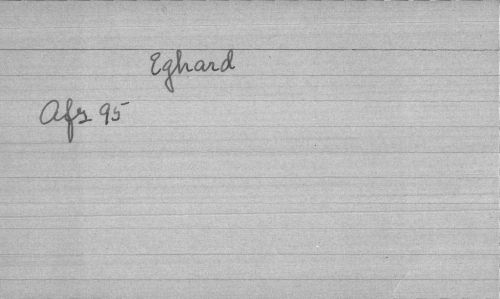 Eghard
Afz 95